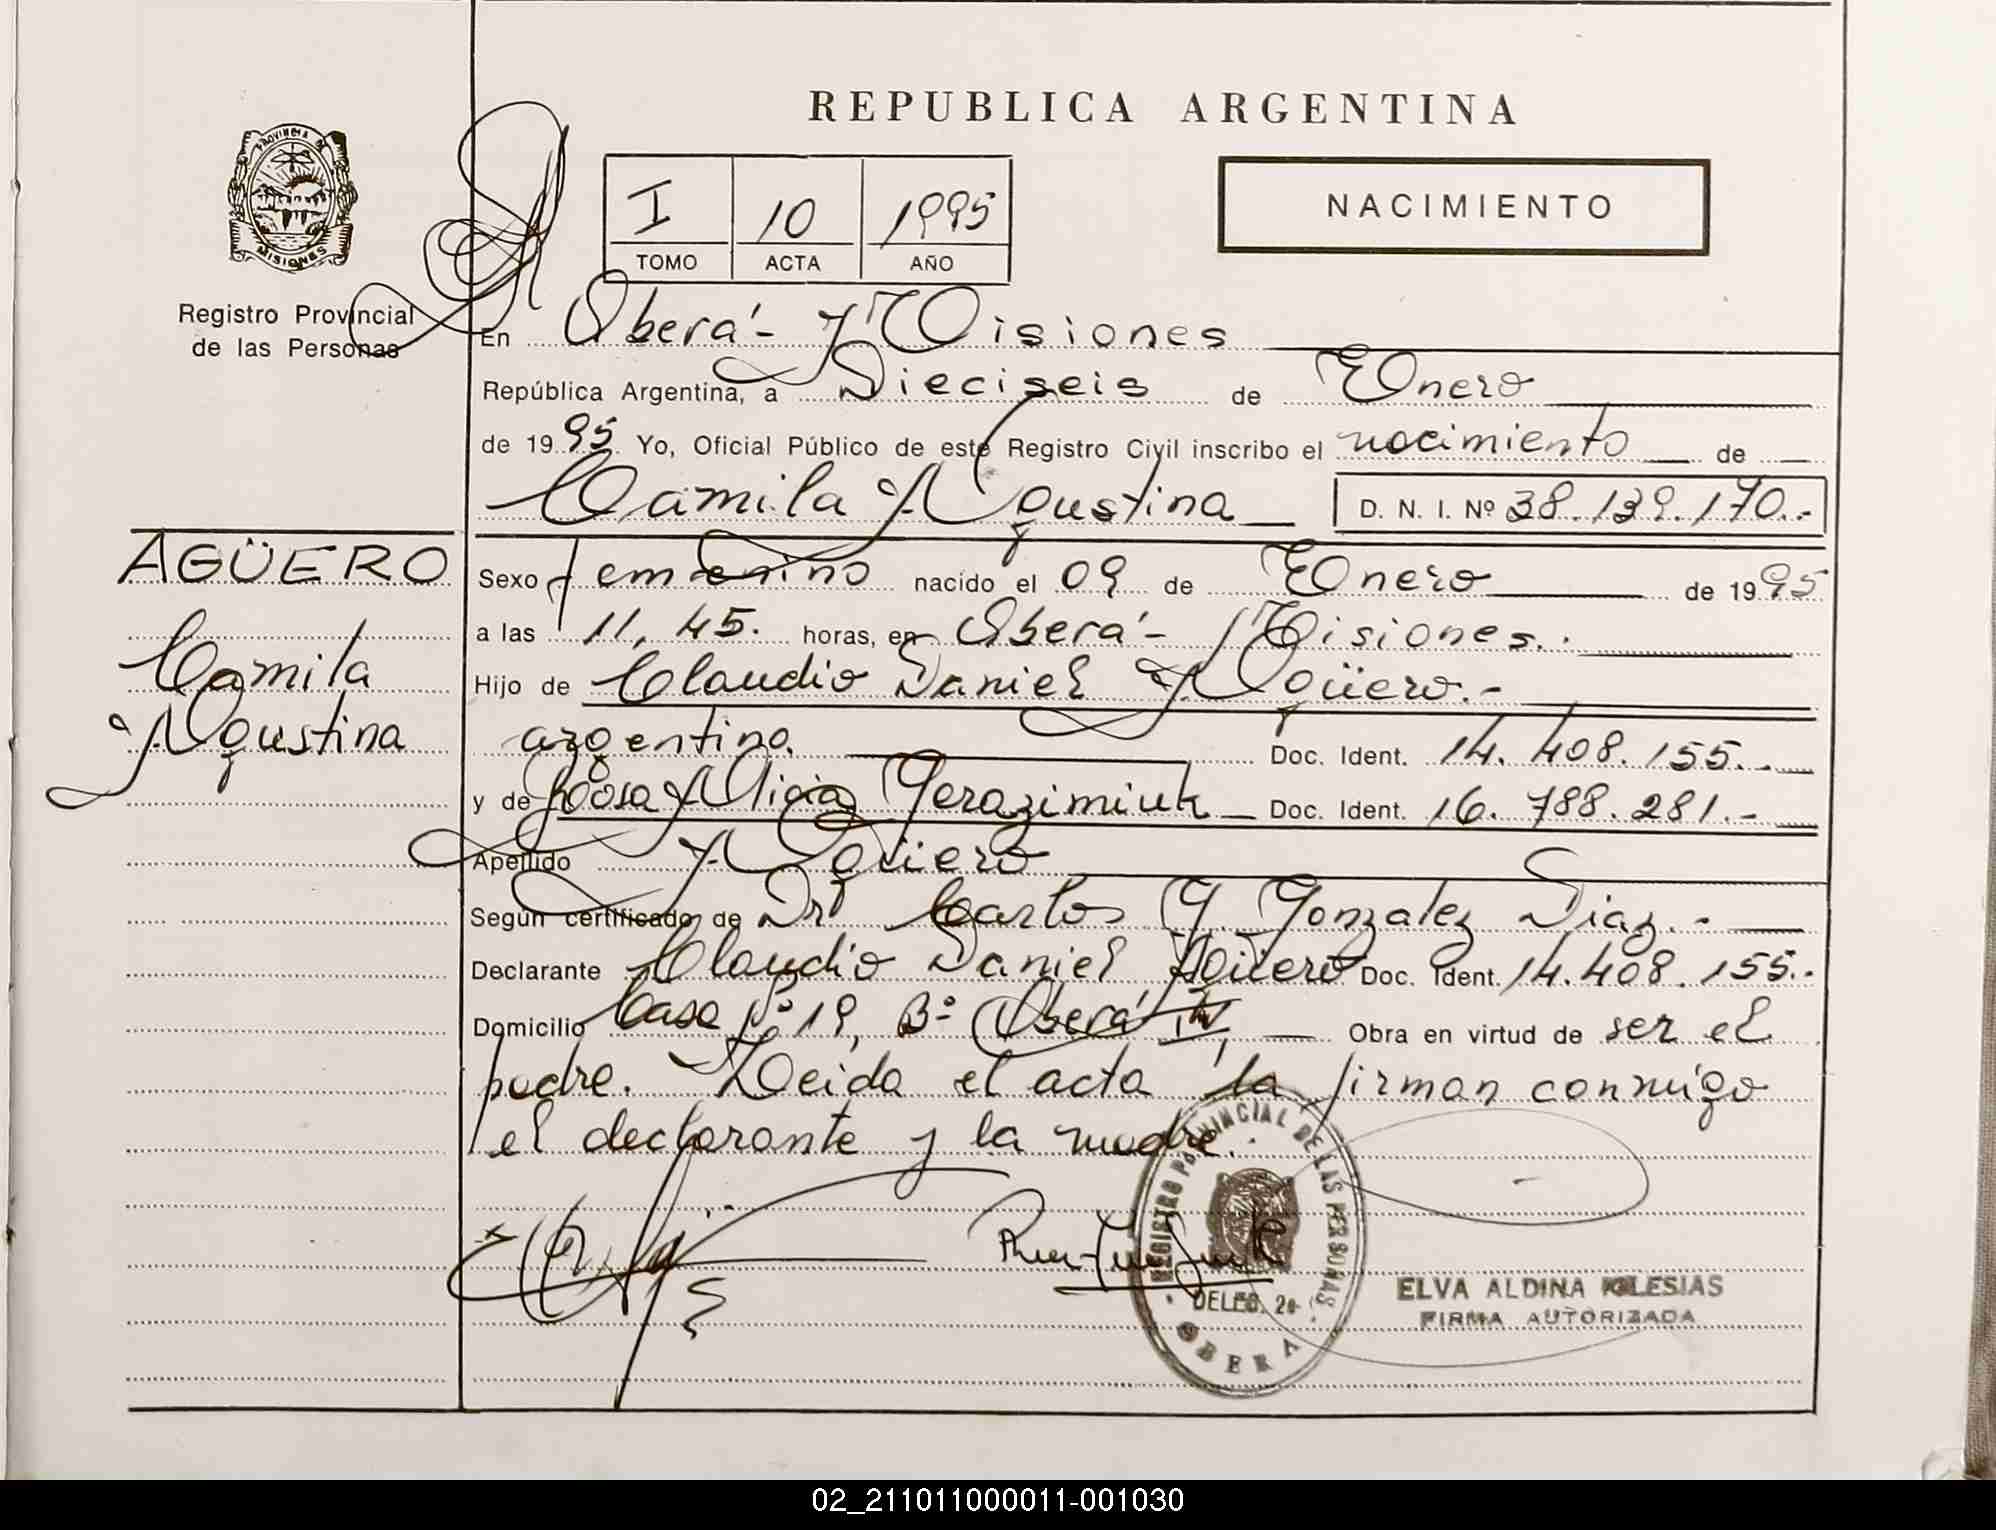 REPUBLICA ARGENTINA
PROVINCIA DE
MISIONES
Registro Provincial
de las Personas
I 10 1995
TOMO ACTA AÑO
NACIMIENTO
En Oberá - Misiones
República Argentina, a Dieciseis de Enero
de 1995 Yo, Oficial Público de este Registro Civil inscribo el nacimiento de
Camila Agustina D. N. I. Nº 38.139.170.-
AGÜERO
Camila
Agustina
Sexo femenino nacido el 09 de Enero de 1995
a las 11,45. horas, en Oberá - Misiones.-
Hijo de Claudio Daniel Agüero.-
argentino. Doc. Ident. 14.408.155.-
y de Rosa Alicia Gerazimiuk Doc. Ident. 16.788.281.-
Apellido Agüero
Según certificado de Dr Carlos G Gonzalez Diaz.-
Declarante Claudio Daniel Agüero Doc. Ident. 14.408.155.-
Domicilio Casa Nº 19, Bº Oberá IV, Obra en virtud de ser el
padre. Leida el acta la firman conmigo
el declarante y la madre.
REGISTRO PROVINCIAL DE LAS PERSONAS
DELEG.
OBERA
ELVA ALDINA IGLESIAS
FIRMA AUTORIZADA
02_211011000011-001030